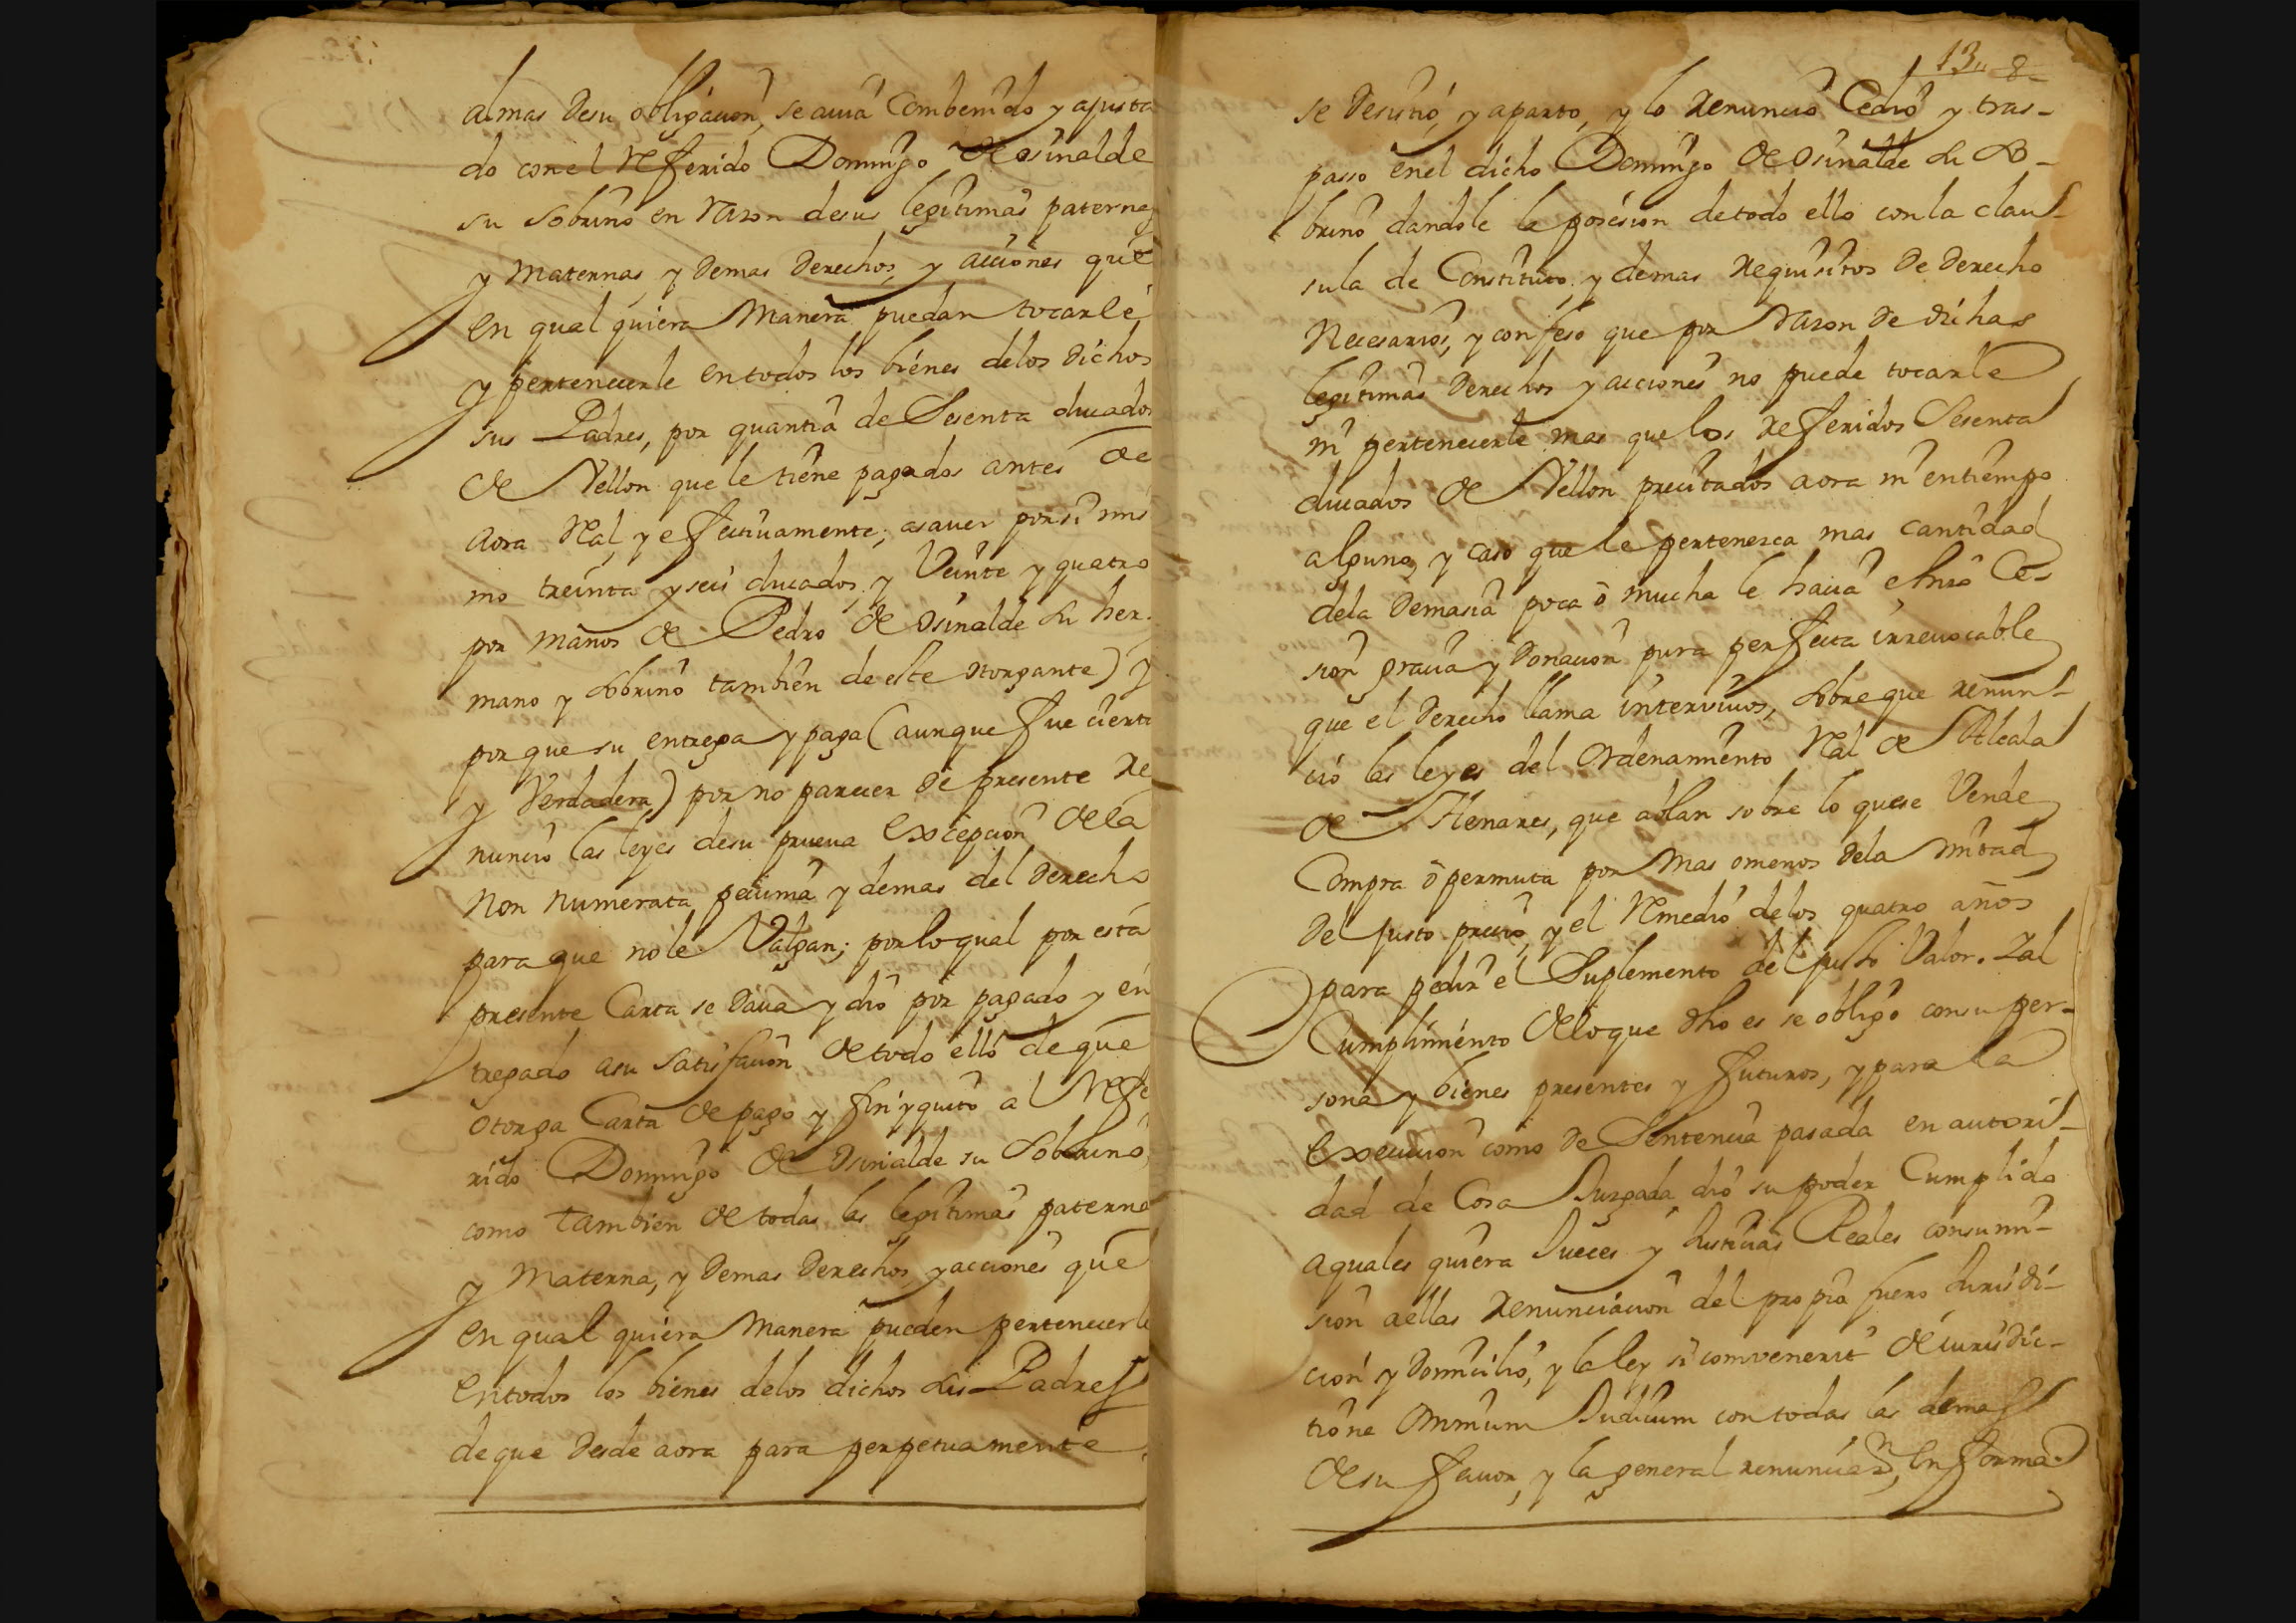 almas desu obligacion, se auia Combenido y ajusta
do con el Refferido Domingo de osinalde
su sobrino en razon desus legitimas paternas
y maternas, y demas derechos, y acciones que
en qual quiera manera puedan tocarle
y pertenecerle en todos los bienes delos dichos
sus Padres, por quantia de Sesenta ducados
de Vellon que le tiene pagados antes de
aora Real, y effectiuamente; asauer por si mis
mo treinta y seis ducados, y Veinte y quatro
por manos de Pedro de osinalde su her-
mano y sobrino tambien de este otorgante) y
porque su entrega y paga (aunque fue cierta
y Verdadera) por no parecer de presente re
nuncio las leyes desu prueua excepcion dela
non numerata pecunia y demas del derecho
para que nole Valgan; por lo qual por esta
presente Carta se daua y dio por pagado y en
tregado asu satisfacion de todo ello de que
otorga Carta de pago y finiquito al Refe
rido Domingo de osinalde su sobrino,
como tambien de todas las legitimas paterna
y Materna, y demas derechos, y acciones que
en qual quiera manera pueden pertenecerle
en todos los bienes delos dichos sus Padres
de que desde aora para perpetuamente
13 8
se desistio, y aparto, y lo renuncio Cedio y tras-
passo enel dicho Domingo de osinalde su so-
brino dandole la posesion detodo ello con la clau-
sula de Constituto y demas requisitos de derecho
necesarios, y confeso que por razon de dichas
legitimas derechos y acciones no puede tocarle
ni pertenecerle mas que los refferidos Sesenta
ducados de Vellon precitados aora ni entiempo
alguno, y caso que le pertenesca mas cantidad
dela demasia poca ô mucha le hauia e hizo Ce-
sion gracia y donacion pura perffecta irreuocable
que el derecho llama intervivos, sobre que renun-
cio las leyes del ordenamiento Real de Alcala
de Henares, que ablan sobre lo quese Vende
Compra ô permuta por mas omenos dela mitad
del justo precio, y el Remedio delos quatro años
para pedir el Suplemento del justo Valor. Y al
Cumplimiento delo que dho es se obligo consu per-
sona y bienes presentes y futuros, y para la
execucion como de Sentencia pasada en autori-
dad de Cosa Juzgada dio su poder Cumplido
a quales quiera Jueces y Justicias Reales consumi-
sion aellas renunciacion del propio fuero Jurisdi-
cion y domicilio, y la ley si comvenerit de iurisdic-
tione omnium Judicum con todas las demas
de su fauor, y la general renunciaon, en forma.